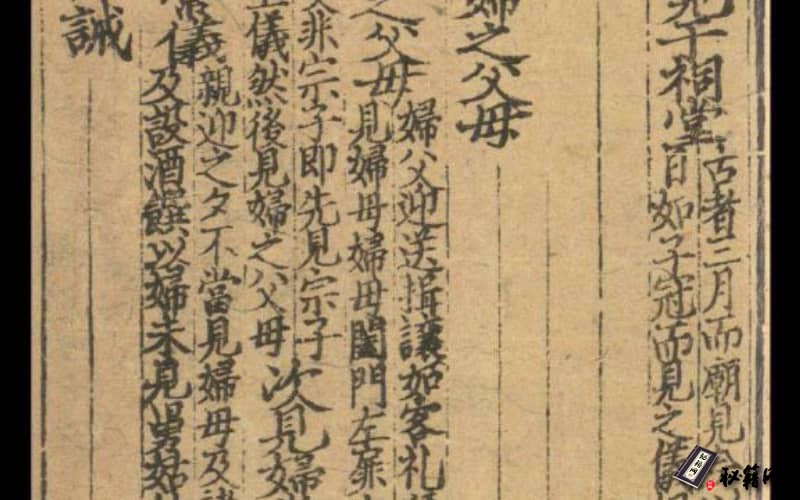 見于祠堂
古者三月而廟見今
日如子冠而見之儀
婦之父母
婦父迎送揖讓如客礼
見婦母婦母闔門左扉
之父母
非宗子即先見宗子
次見婦
儀然後見婦之父母
儀
親迎之夕不當見婦母及諸
及設酒饌以婦未見舅姑
誡
秘籍